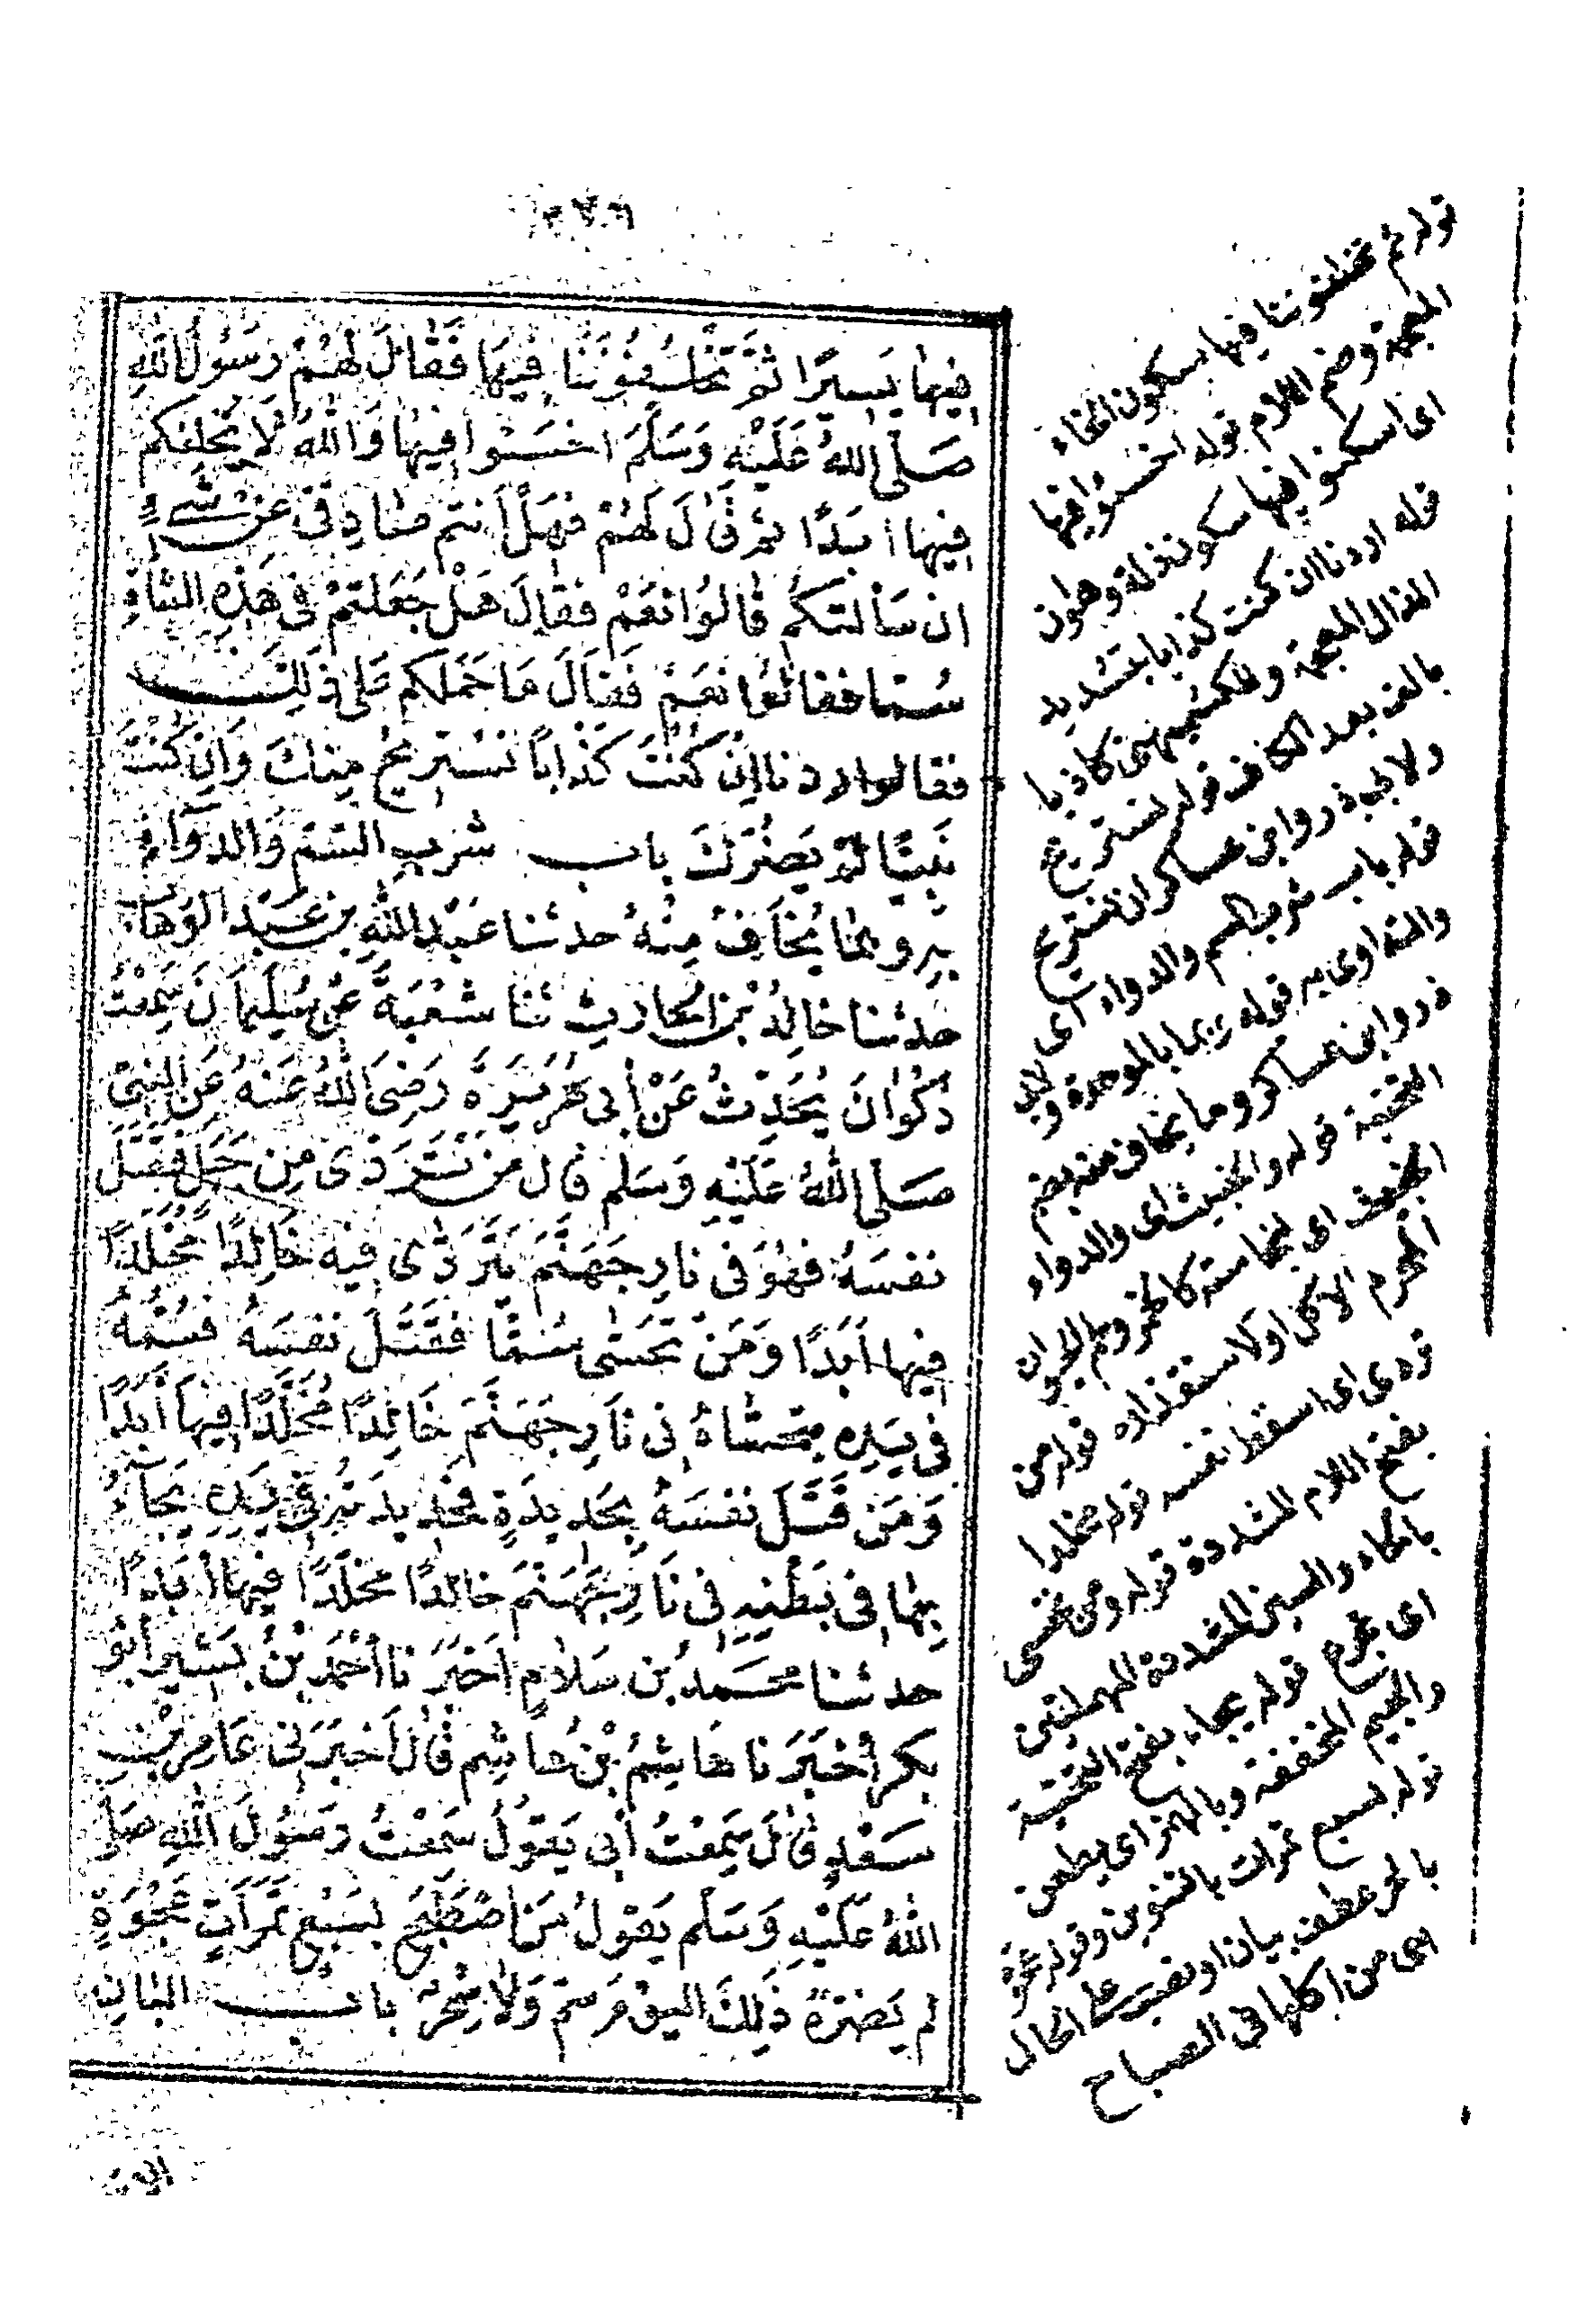 فِيهَا يَسِيرًا ثُمَّ تَخْلُفُونَنَا فِيهَا فَقَالَ لَهُمْ رَسُولُ اللهِ
صَلَّى اللهُ عَلَيْهِ وَسَلَّمَ اخسَئوا فِيهَا وَاللهِ لَا نَخلفكم
فِيهَا ابَدًا ثم قَالَ لَهُمْ فهَلْ أنتم صَادِقِىَّ عَنْ شَىْءٍ
ان سَألتكم قَالوُا نَعَمْ فقَالَ هَلْ جَعَلتمْ فى هَذِهِ الشاةِ
سُمّا فقالوُا نعَمْ فَقَالَ مَا حَمَلكم عَلى ذَلِكَ
فقالوا اردنا اِنْ كُنْتَ كَذّابًا نَسْتَريحُ مِنكَ وَاِن كُنْتَ
نَبِيًّا لمْ يَضُرّكَ باب شُرْبِ السُّمّ وَالدوَاءِ
بِهِ وبمَا يُخَافُ مِنْهُ حدثنا عَبْدُ اللهِ بن عَبْدِ الوَهاب
حَدثنا خَالِدُ بْنُ الحَارِثِ ثنا شعْبَةُ عَنْ سُلَيمَانَ سَمِعْتُ
ذَكْوَانَ يُحَدِّثُ عَنْ أبى هُرَيرَةَ رَضِىَ اللهُ عَنهُ عَنِ النبىّ
صَلّى اللهُ عَلَيْهِ وَسَلم قال مَن تَرَدّى مِن جَبَلٍ فقَتَلَ
نفسَهُ فهْوَ فى نَارِ جَهَنَّمَ يَتَرَدَّى فِيهِ خَالِدًا مُخَلّدًا
فِيهَا أبَدًا وَمَنْ تَحَسَّى سُمًّا فقَتَلَ نَفسَهُ فسُمُّهُ
فى يَدِهِ يتحسَّاهُ فى نَارِ جَهَنَّمَ خَالِدًا مُخَلَّدًا فِيهَا أبَدًا
وَمَنْ قَتَلَ نفسَهُ بِحَدِيدَةٍ فحَدِيدَتهُ فِى يَدِهِ يَجَأُ
بِهَا فى بَطْنِهِ فِى نَارِ جَهَنَّمَ خالِدًا مُخَلّدًا فِيهَا أَبَدًا
حدثنا محَمّدُ بن سَلامٍ أخبَرَنَا أحْمَدُ بْنُ بَشيرٍ أبُو
بَكرٍ أخْبَرَنَا هَاشِمُ بْنُ هَاشِمٍ قَالَ أخبَرَنى عَامِرُ بْنُ
سَعْدٍ قَالَ سَمِعْتُ أبى يَقوُلُ سَمِعْتُ رَسُولَ اللهِ صَلَّى
اللهُ عَلَيْهِ وَسَلّم يَقولُ مَنِ اصْطَبَحَ بسَبْعِ تَمَرَاتٍ عَجْوَةٍ
لم يَضُرّهُ ذَلِكَ اليَوْمَ سَمّ وَلَا سِحْرٌ باب البَانِ
قوله ثم تخلفوننا فيها بسكون الخاء
المعجمة وضم اللام قوله اخسئوا فيها
اى اسكنوا فيها سكون ذلة وهوان
قوله اردنا ان كنت كذابا بتشديد
الذال المعجمة وللكشميهنى كاذبا
بالف بعد الكاف قوله نستريح
ولابى ذر وابن عساكر ان نستريح
قوله باب شرب السم والدواء اى
والتداوى به قوله وبما بالموحدة
ذر وابن عساكر وما يخاف منه بضم
التحتية قوله والخبيث اى والدواء
الخبيث اى لنجاسته كالخمر ولحم الحيوان
المحرم الاكل او لاستقذاره قوله من
تردى اى اسقط نفسه قوله مخلدا
بفتح اللام المشددة قوله ومن تحسى
بالحاء والسين المشددة المهملتين
اى تجرع قوله يجاء بفتح التحتية
والجيم المخففة وبالهمز اى يطعن
قوله بسبع تمرات بالتنوين وقوله عجوة
بالجر عطف بيان او نصب على الحال
اى من اكلها فى الصباح